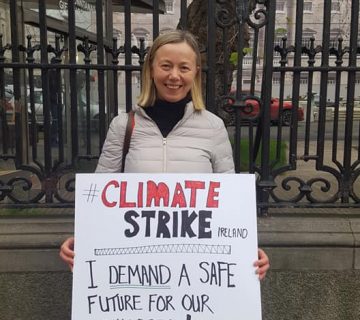 #CLIMATE
STRIKE IRELAND
I DEMAND A SAFE
FUTURE FOR OUR